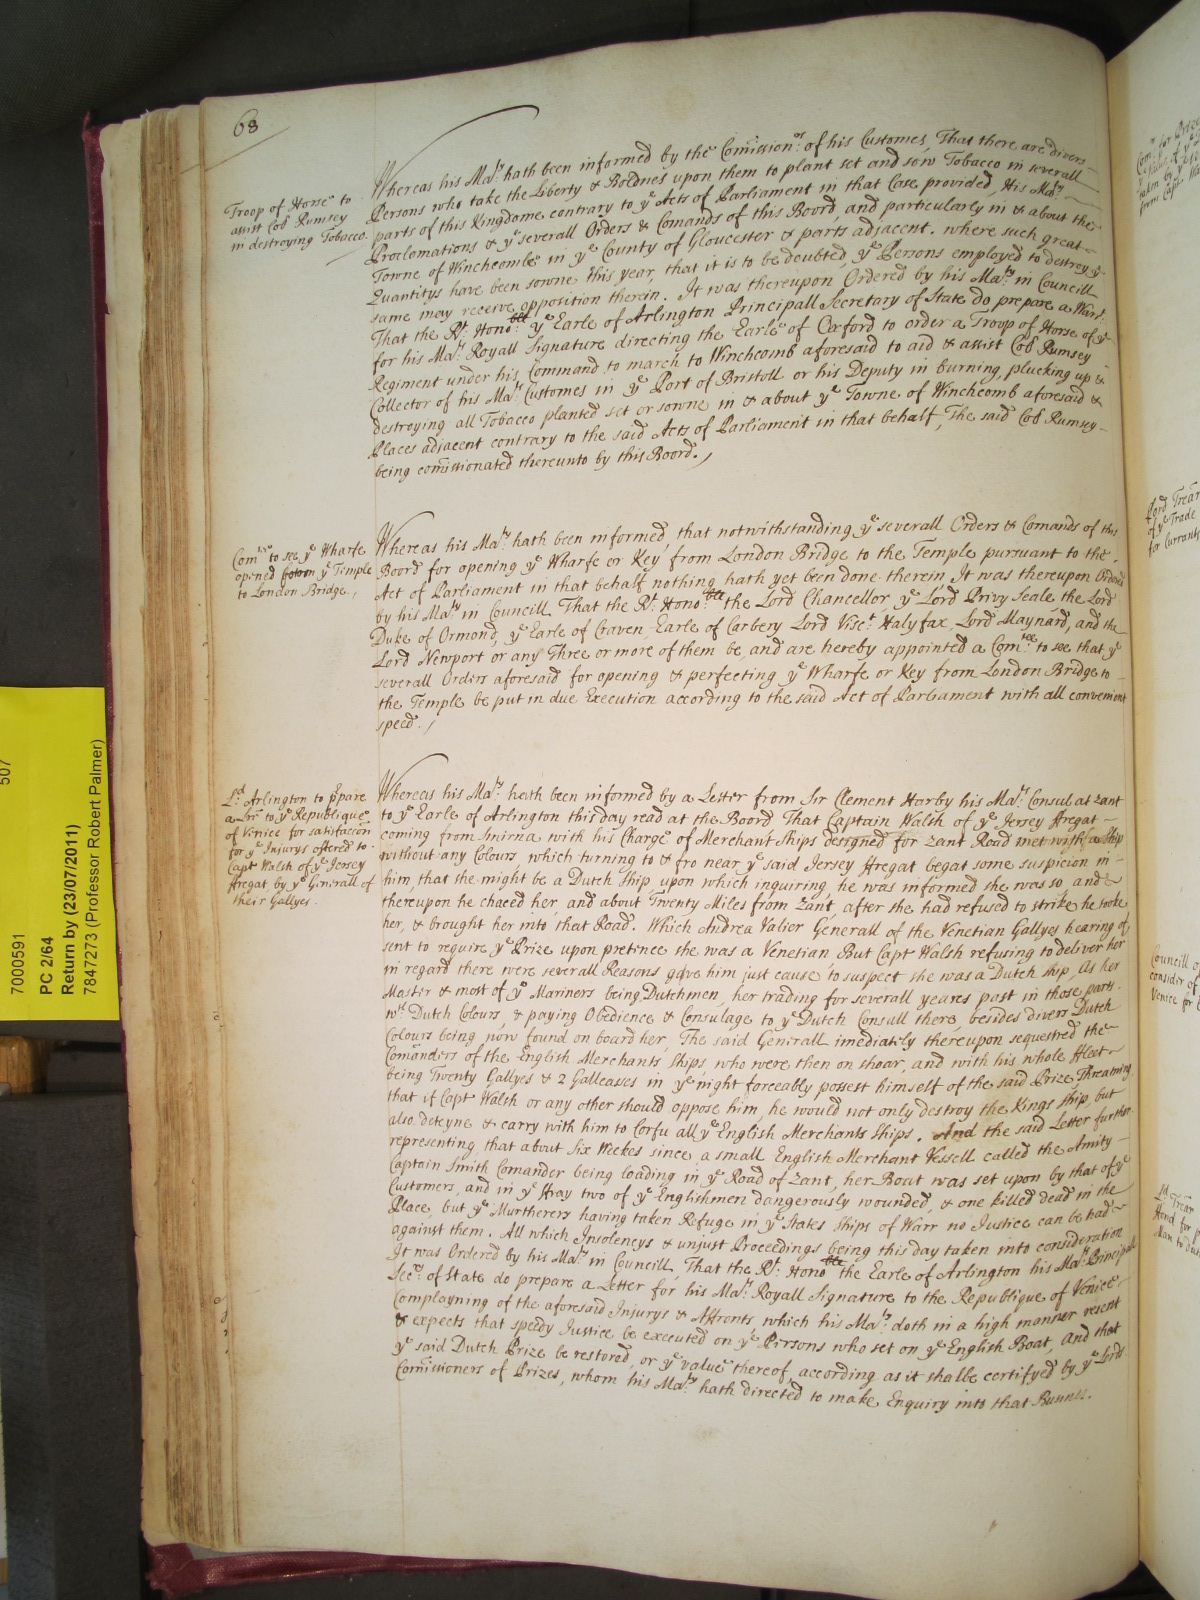 68
Troop of Horse to
assist Coll Rumsey
in destroying Tobacco.
Whereas his Maty. hath been informed by the Comissionors. of his Customes, That there are divers
Persons who take the Liberty & Boldnes upon them to plant set and sow Tobacco in severall
parts of this Kingdome contrary to ye Acts of Parliament in that Case provided, His Maty.
Proclomations & ye severall Orders & Comands of this Boord, and particularly in & about the
Towne of Winchcombe in ye County of Gloucester & parts adjacent. where such great
Quantitys have been sowne this year, that it is to be doubted, ye Persons employed to destroy ye
same may receive opposition therein. It was thereupon Ordered by his Maty. in Councill
That the Rt. Honoble: ye Earle of Arlington Principall Secretary of State do prepare a Warrt.
for his Mats. Royall Signature directing the Earle of Oxford to order a Troop of Horse of ye
Regiment under his Command to march to Winchcomb aforesaid to aid & assist Coll Rumsey
Collector of his Mats. Customes in ye Port of Bristoll or his Deputy in burning, plucking up &
destroying all Tobacco planted set or sowne in & about ye Towne of Winchcomb aforesaid &
Places adjacent contrary to the said Acts of Parliament in that behalf, The said Coll Rumsey
being comissionated thereunto by this Boord.
Comtee to see ye Wharfe
opened from ye Temple
to London Bridge
Whereas his Maty. hath been informed, that notwithstanding ye severall Orders & Comands of this
Boord for opening ye Wharfe or Key from London Bridge to the Temple pursuant to the
Act of Parliament in that behalf nothing hath yet been done therein It was thereupon Ordered
by his Maty in Councill That the Rt. Honoble the Lord Chancellor, ye Lord Privy Seale the Lord
Duke of Ormond, ye Earle of Craven Earle of Carbery Lord Visct. Halyfax Lord Maynard, and the
Lord Newport or any Three or more of them be, and are hereby appointed a Comtee to see that ye
severall Orders aforesaid for opening & perfecting ye Wharfe or Key from London Bridge to
the Temple be put in due Execution according to the said Act of Parliament with all convenient
speed.
Ld. Arlington to prpare
a Lre to ye Republique
of Venice for satisfacion
for ye Injurys offered to
Capt Walsh of ye Jersey
Fregat by ye Generall of
their Gallyes.
Whereas his Maty. hath been informed by a Letter from Sir Clement Harby his Mats. Consul at Zant
to ye Earle of Arlington this day read at the Boord That Captain Walsh of ye Jersey Fregat
coming from Smirna with his Charge of Merchant Ships designed for Zant Road met with a Ship
without any Colours, which turning to & fro near ye said Jersey Fregat begat some suspicion in
him, that she might be a Dutch Ship, upon which inquiring, he was informed she was so, and
thereupon he chaced her, and about Twenty Miles from Zant, after she had refused to strike he tooke
her, & brought her into that Road. Which Andrea Valier Generall of the Venetian Gallyes hearing of
sent to require ye Prize upon pretence she was a Venetian But Capt Walsh refusing to deliver her
in regard there were severall Reasons gave him just cause to suspect she was a Dutch Ship, As her
Master & most of ye Mariners being Dutchmen, her trading for severall yeares past in those parts
wth Dutch Colours & paying Obedience & Consulage to ye Dutch Consull there, besides divers Dutch
Colours being now found on board her, The said Generall imediately thereupon sequestred the
Comanders of the English Merchants Ships, who were then on shoar, and with his whole Fleet
being Twenty Gallyes & 2 Galleases in ye night forceably possest himself of the said Prize Threatning
that if Capt Walsh or any other should oppose him, he would not only destroy the Kings Ship, but
also deteyne & carry with him to Corfu all ye English Merchants Ships. And the said Letter further
representing that about Six Weekes since a small English Merchant Vessell called the Amity
Captain Smith Comander being loading in ye Road of Zant, her Boat was set upon by that of ye
Customers, and in ye Fray two of ye Englishmen dangerously wounded, & one killed dead in the
Place, but ye Murtherers having taken Refuge in ye States Ships of Warr no Justice can be had
against them. All which Insolencys & unjust Proceedings being this day taken into consideration
It was Ordered by his Maty. in Councill, That the Rt: Honoble the Earle of Arlington his Mats. Principall
Secry. of State do prepare a Letter for his Mats. Royall Signature to the Republique of Venice
Complayning of the aforesaid Injurys & Affronts which his Maty. doth in a high manner resent
& expects that speedy Justice be executed on ye Persons who set on ye English Boat, And that
ye said Dutch Prize be restored, or ye value thereof, according as it shalbe certifyed by ye Lords
Comissioners of Prizes, whom his Maty hath directed to make Enquiry into that Busines.
507
7000591
PC 2/64
Return by (23/07/2011)
7847273 (Professor Robert Palmer)